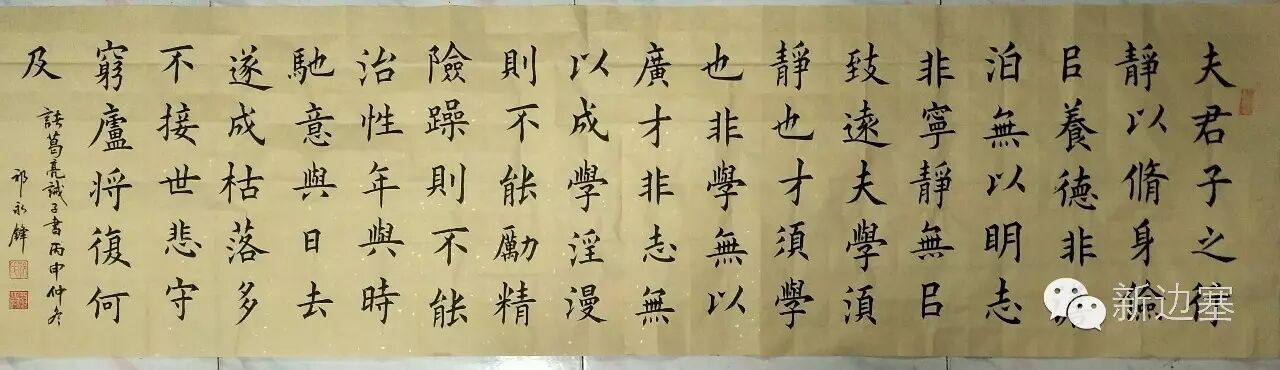 夫君子之行
靜以脩身儉
㠯養德非
泊無以明志
非寧靜無㠯
致遠夫學須
靜也才須學
也非學無以
廣才非志無
以成學淫漫
則不能勵精
險躁則不能
治性年與時
馳意與日去
遂成枯落多
不接世悲守
窮廬將復何
及
諸葛亮誡子書丙申仲冬
祁永鋒
新边塞